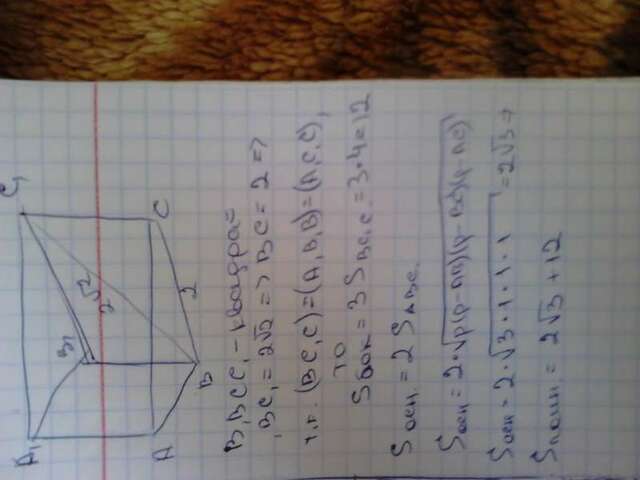 C₁
A₁
B₁
2√2
C
2
A
B
B₁BCC₁ - квадрат
BC₁ = 2√2 => BC = 2 =>
т.к. (BC₁C) = (A₁B₁B) = (A₁C₁C),
то
Sбок = 3 SBC₁C = 3·4 = 12
Sосн. = 2 SABC.
Sосн = 2·√p(p-AB)(p-BC)(p-AC)
Sосн = 2·√3·1·1·1 = 2√3 =>
Sполн. = 2√3 + 12